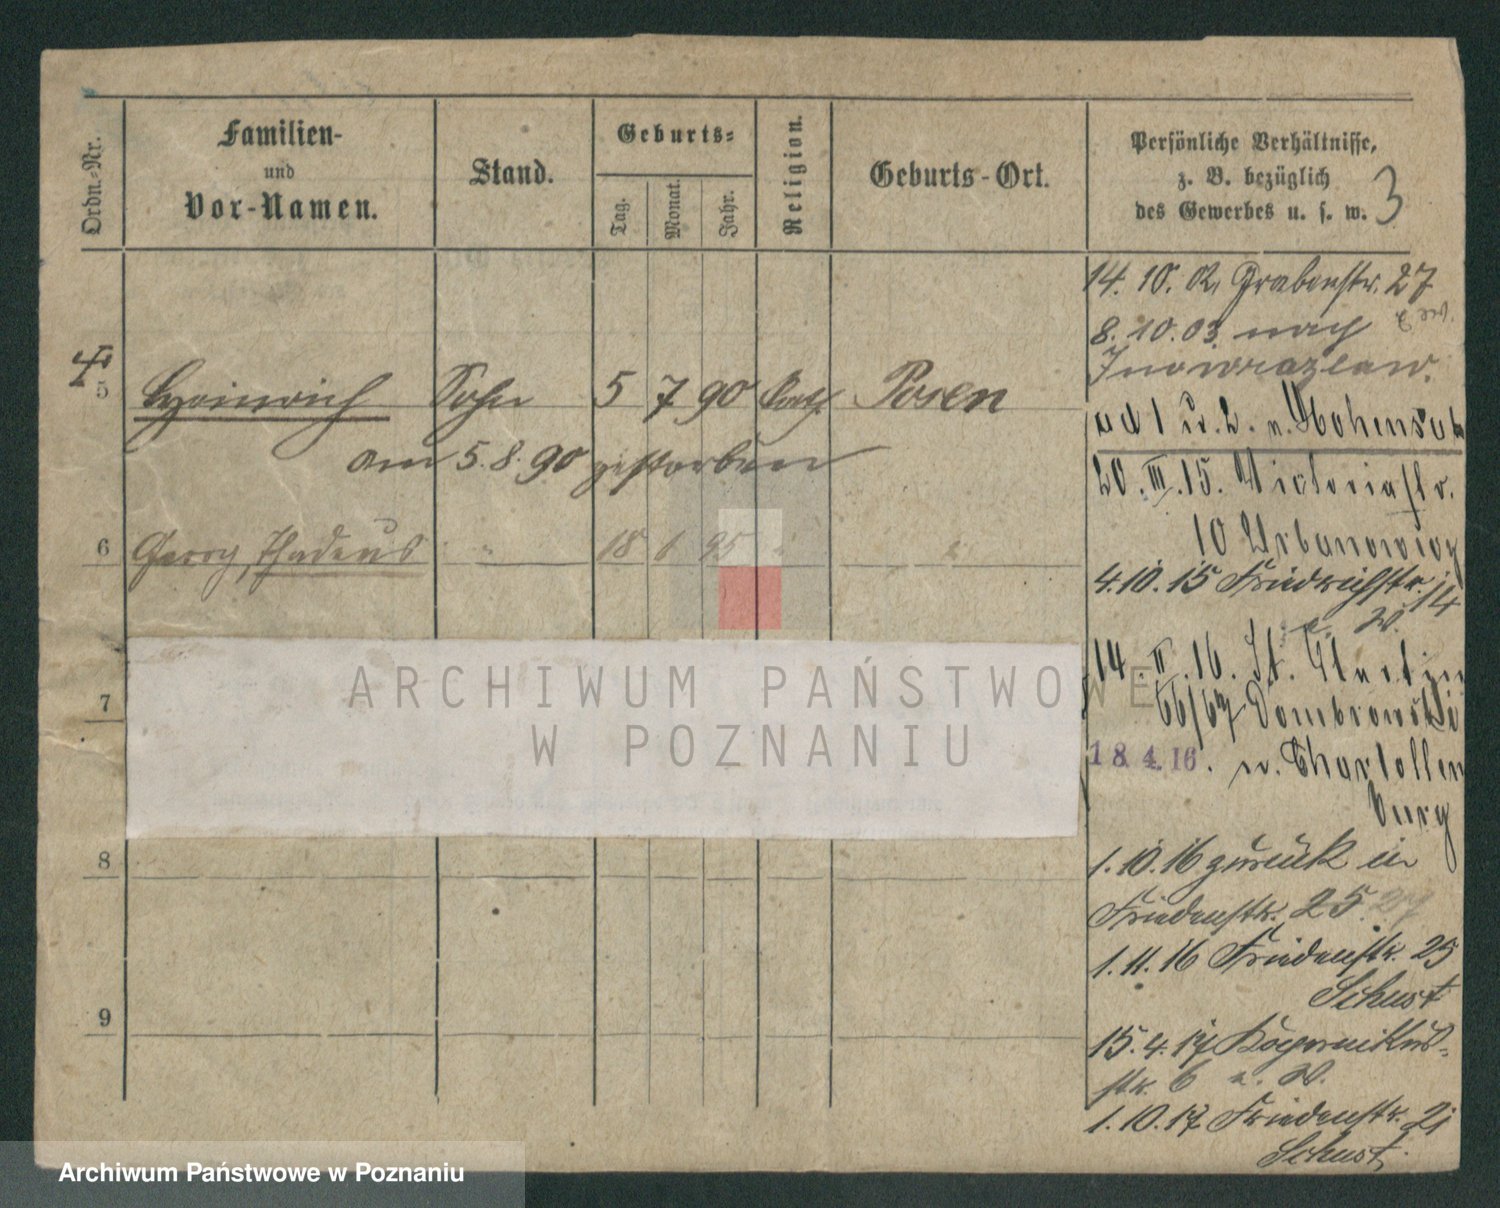 Ordn.-Nr.
Familien-
und
Vor-Namen.
Stand.
Geburts-
Tag.
Monat.
Jahr.
Religion.
Geburts-Ort.
Persönliche Verhältnisse,
z. B. bezüglich
des Gewerbes u. s. w. 3
14. 10. 02, Grabenstr. 27
8. 10. 03 nach
Inowrazlaw.
5 Heinrich Sohn 5 7 90 kath. Posen
ad 1 u. 2. n. Hohensalza
am 5. 8. 90 gestorben
20. III. 15. Victoriastr.
10 Urbanowicz
6 Georg, Thadeus " 18 6 95 " "
4. 10. 15 Friedrichstr. 14
14. II. 16. St. Martin
66/67 Dombrowski
7
18. 4. 16. n. Charlotten
burg
8
1. 10. 16 zurück in
Friedenstr. 25
1. 11. 16 Friedenstr. 25
Schust
9
15. 4. 17 Kopernikus-
str. 6
1. 10. 17 Friedenstr. 21
Schust.
ARCHIWUM PAŃSTWOWE
W POZNANIU
Archiwum Państwowe w Poznaniu